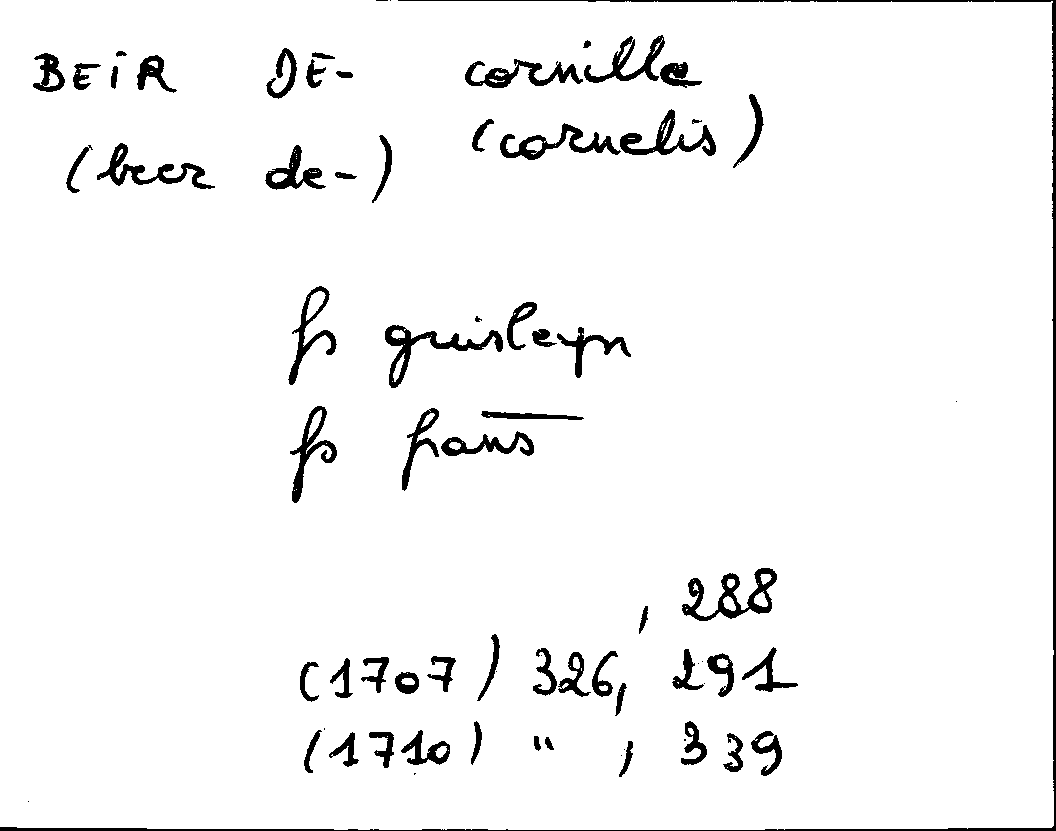 BEIR DE- cornille
(beer de-) (cornelis)
fs guisleyn
fs frans
, 288
(1707) 326, 291
(1710) " , 339